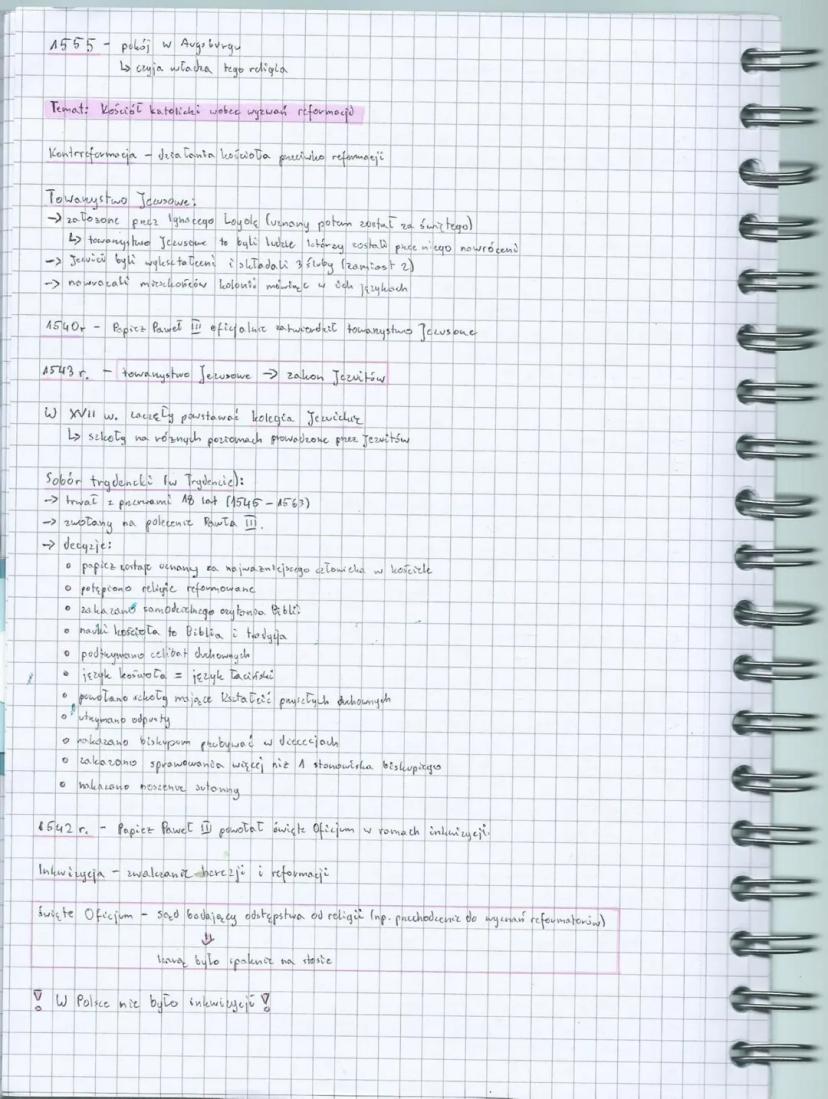 1555 - pokój w Augsburgu
↳ czyja władza tego religia
Temat: Kościół katolicki wobec wyzwań reformacji
Kontrreformacja - działania kościoła przeciwko reformacji
Towarzystwo Jezusowe:
→ założone przez Ignacego Loyolę (uznany potem został za świętego)
↳ towarzystwo Jezusowe to byli ludzie którzy zostali przez niego nawróceni
→ Jezuici byli wykształceni i składali 3 śluby (zamiast 2)
→ nawracali mieszkańców kolonii mówiąc w ich językach
1540r - Papież Paweł III oficjalnie zatwierdził towarzystwo Jezusowe
1543 r. - towarzystwo Jezusowe → zakon Jezuitów
W XVII w. zaczęły powstawać kolegia Jezuickie
↳ szkoły na różnych poziomach prowadzone przez Jezuitów
Sobór trydencki (w Trydencie):
→ trwał z przerwami 18 lat (1545 - 1563)
→ zwołany na polecenie Pawła III.
→ decyzje:
• papież zostaje uznany za najważniejszego człowieka w kościele
• potępiono religie reformowane
• zakazano samodzielnego czytania Biblii
• nauki kościoła to Biblia i tradycja
• podtrzymano celibat duchownych
• język kościoła = język łaciński
• powołano szkoły mające kształcić przyszłych duchownych
• utrzymano odpusty
• nakazano biskupom przebywać w diecezjach
• zakazano sprawowania więcej niż 1 stanowiska biskupiego
• nakazano noszenie sutanny
1542 r. - Papież Paweł III powołał święte Oficjum w ramach inkwizycji.
Inkwizycja - zwalczanie herezji i reformacji
święte Oficjum - sąd badający odstępstwa od religii (np. przechodzenie do wyznań reformatorów)
⇓
karą było spalenie na stosie
! W Polsce nie było inkwizycji !